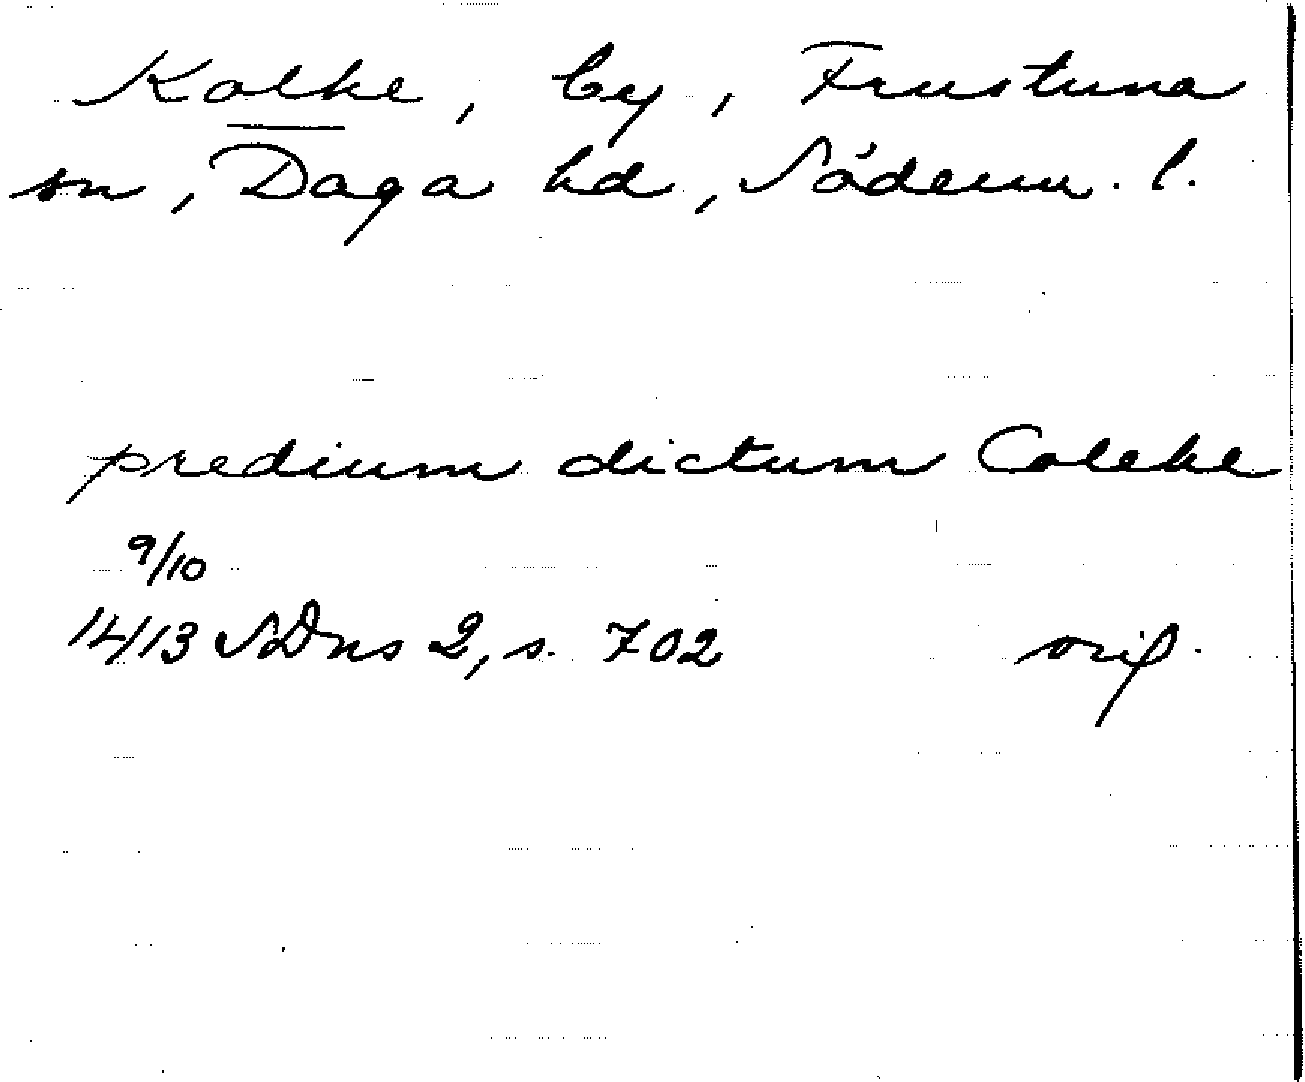 Kolke, by, Frustuna
sn, Daga hd, Söderm. l.
predium dictum Colekel
9/10
1413 SDns 2, s. 702 orig.